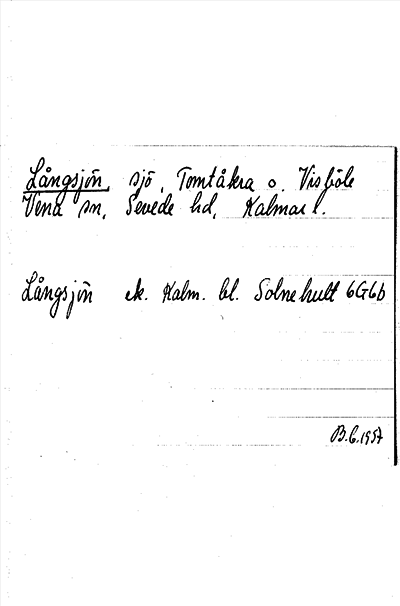 Långsjön, sjö, Tomtåkra o. Visböle
Vena sn, Sevede hd, Kalmar l.
Långsjön ek. Kalm. bl. Solnehult 6G6b
B.C. 1957